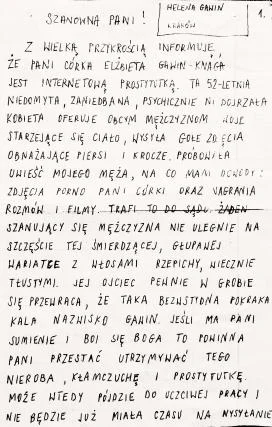 HELENA GAWIN
KRAKÓW
1.
SZANOWNA PANI!
Z WIELKĄ PRZYKROŚCIĄ INFORMUJĘ,
ŻE PANI CÓRKA ELŻBIETA GAWIN-KNAGA
JEST INTERNETOWĄ PROSTYTUTKĄ. TA 52-LETNIA
NIEDOMYTA, ZANIEDBANA, PSYCHICZNIE NIEDOJRZAŁA
KOBIETA OFERUJE OBCYM MĘŻCZYZNOM
STARZEJĄCE SIĘ CIAŁO, WYSYŁA GOŁE ZDJĘCIA
OBNAŻAJĄCE PIERSI I KROCZE. PRÓBOWAŁA
UWIEŚĆ MOJEGO MĘŻA, NA CO MAM DOWODY:
ZDJĘCIA PORNO PANI CÓRKI ORAZ NAGRANIA
ROZMÓW I FILMY. TRAFI TO DO SĄDU. ŻADEN
SZANUJĄCY SIĘ MĘŻCZYZNA NIE ULEGNIE NA
SZCZĘŚCIE TEJ ŚMIERDZĄCEJ, GŁUPAWEJ
WARIATCE Z WŁOSAMI RZEPICHY, WIECZNIE
TŁUSTYMI. JEJ OJCIEC PEWNIE W GROBIE
SIĘ PRZEWRACA, ŻE TAKA BEZWSTYDNA POKRAKA
KALA NAZWISKO GAWIN. JEŚLI MA PANI
SUMIENIE I BOI SIĘ BOGA TO POWINNA
PANI PRZESTAĆ UTRZYMYWAĆ TEGO
NIEROBA, KŁAMCZUCHĘ I PROSTYTUTKĘ.
MOŻE WTEDY PÓJDZIE DO UCZCIWEJ PRACY I
NIE BĘDZIE JUŻ MIAŁA CZASU NA WYSYŁANIE